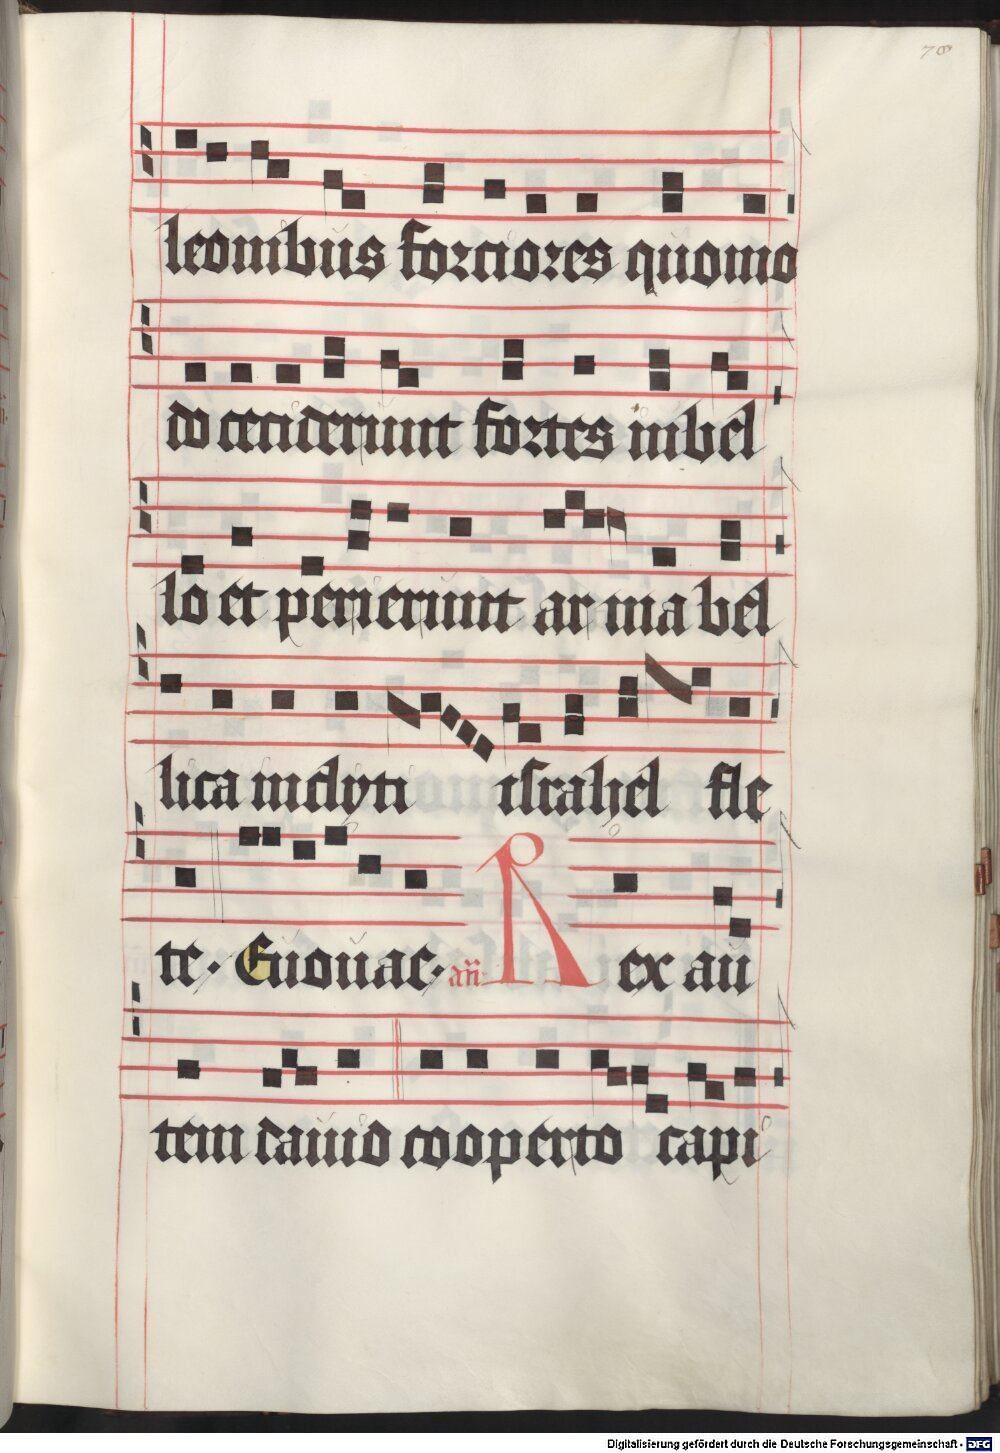 78
leonibus forciores quomo
do ceciderunt fortes in bel
lo et perierunt arma bel
lica inclyti israhel fle
te. Euouae. an̄ Rex au
tem dauid cooperto capi
Digitalisierung gefördert durch die Deutsche Forschungsgemeinschaft - DFG